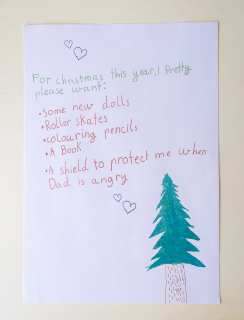 For christmas this year, i Pretty
please want:
•some new dolls
•Roller skates
•colouring pencils
•A Book
•A shield to protect me when
Dad is angry